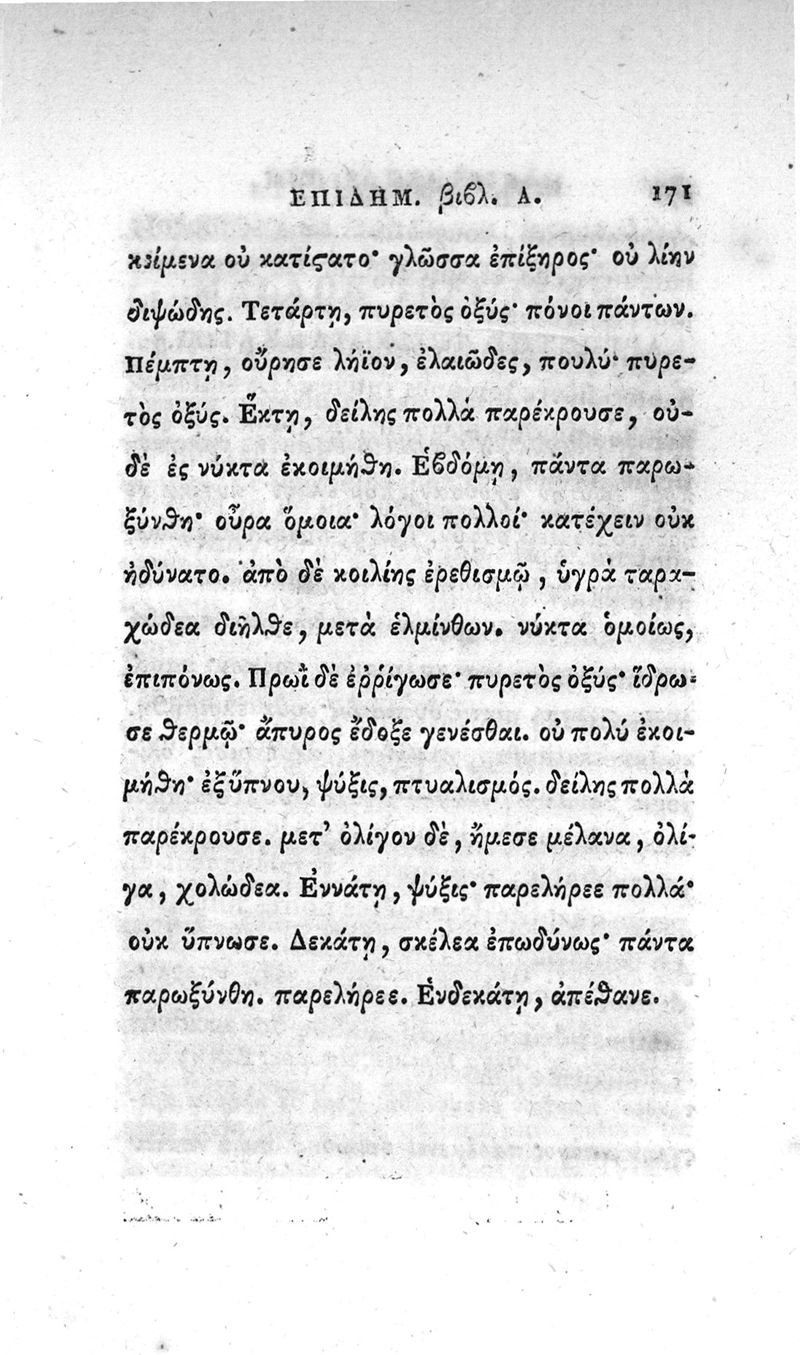 ΕΠΙΔΗΜ. βιβλ. Α. 171
κείμενα οὐ κατίϛατο· γλῶσσα ἐπίξηρος· οὐ λίην
διψώδης. Τετάρτῃ, πυρετὸς ὀξύς· πόνοι πάντων.
Πέμπτῃ, οὔρησε λήϊον, ἐλαιῶδες, πουλύ· πυρε-
τὸς ὀξύς. Ἕκτῃ, δείλης πολλὰ παρέκρουσε, οὐ-
δὲ ἐς νύκτα ἐκοιμήθη. Ἑβδόμῃ, πάντα παρω-
ξύνθη· οὖρα ὅμοια· λόγοι πολλοί· κατέχειν οὐκ
ἠδύνατο. ἀπὸ δὲ κοιλίης ἐρεθισμῷ, ὑγρὰ ταρα-
χώδεα διῆλθε, μετὰ ἑλμίνθων. νύκτα ὁμοίως,
ἐπιπόνως. Πρωῒ δὲ ἐῤῥίγωσε· πυρετὸς ὀξύς· ἵδρω-
σε θερμῷ· ἄπυρος ἔδοξε γενέσθαι. οὐ πολύ ἐκοι-
μήθη· ἐξ ὕπνου, ψύξις, πτυαλισμός. δείλης πολλὰ
παρέκρουσε. μετ’ ὀλίγον δὲ, ἤμεσε μέλανα, ὀλί-
γα, χολώδεα. Ἐννάτῃ, ψύξις· παρελήρεε πολλά·
οὐκ ὕπνωσε. Δεκάτῃ, σκέλεα ἐπωδύνως· πάντα
παρωξύνθη. παρελήρεε. Ἑνδεκάτῃ, ἀπέθανε.